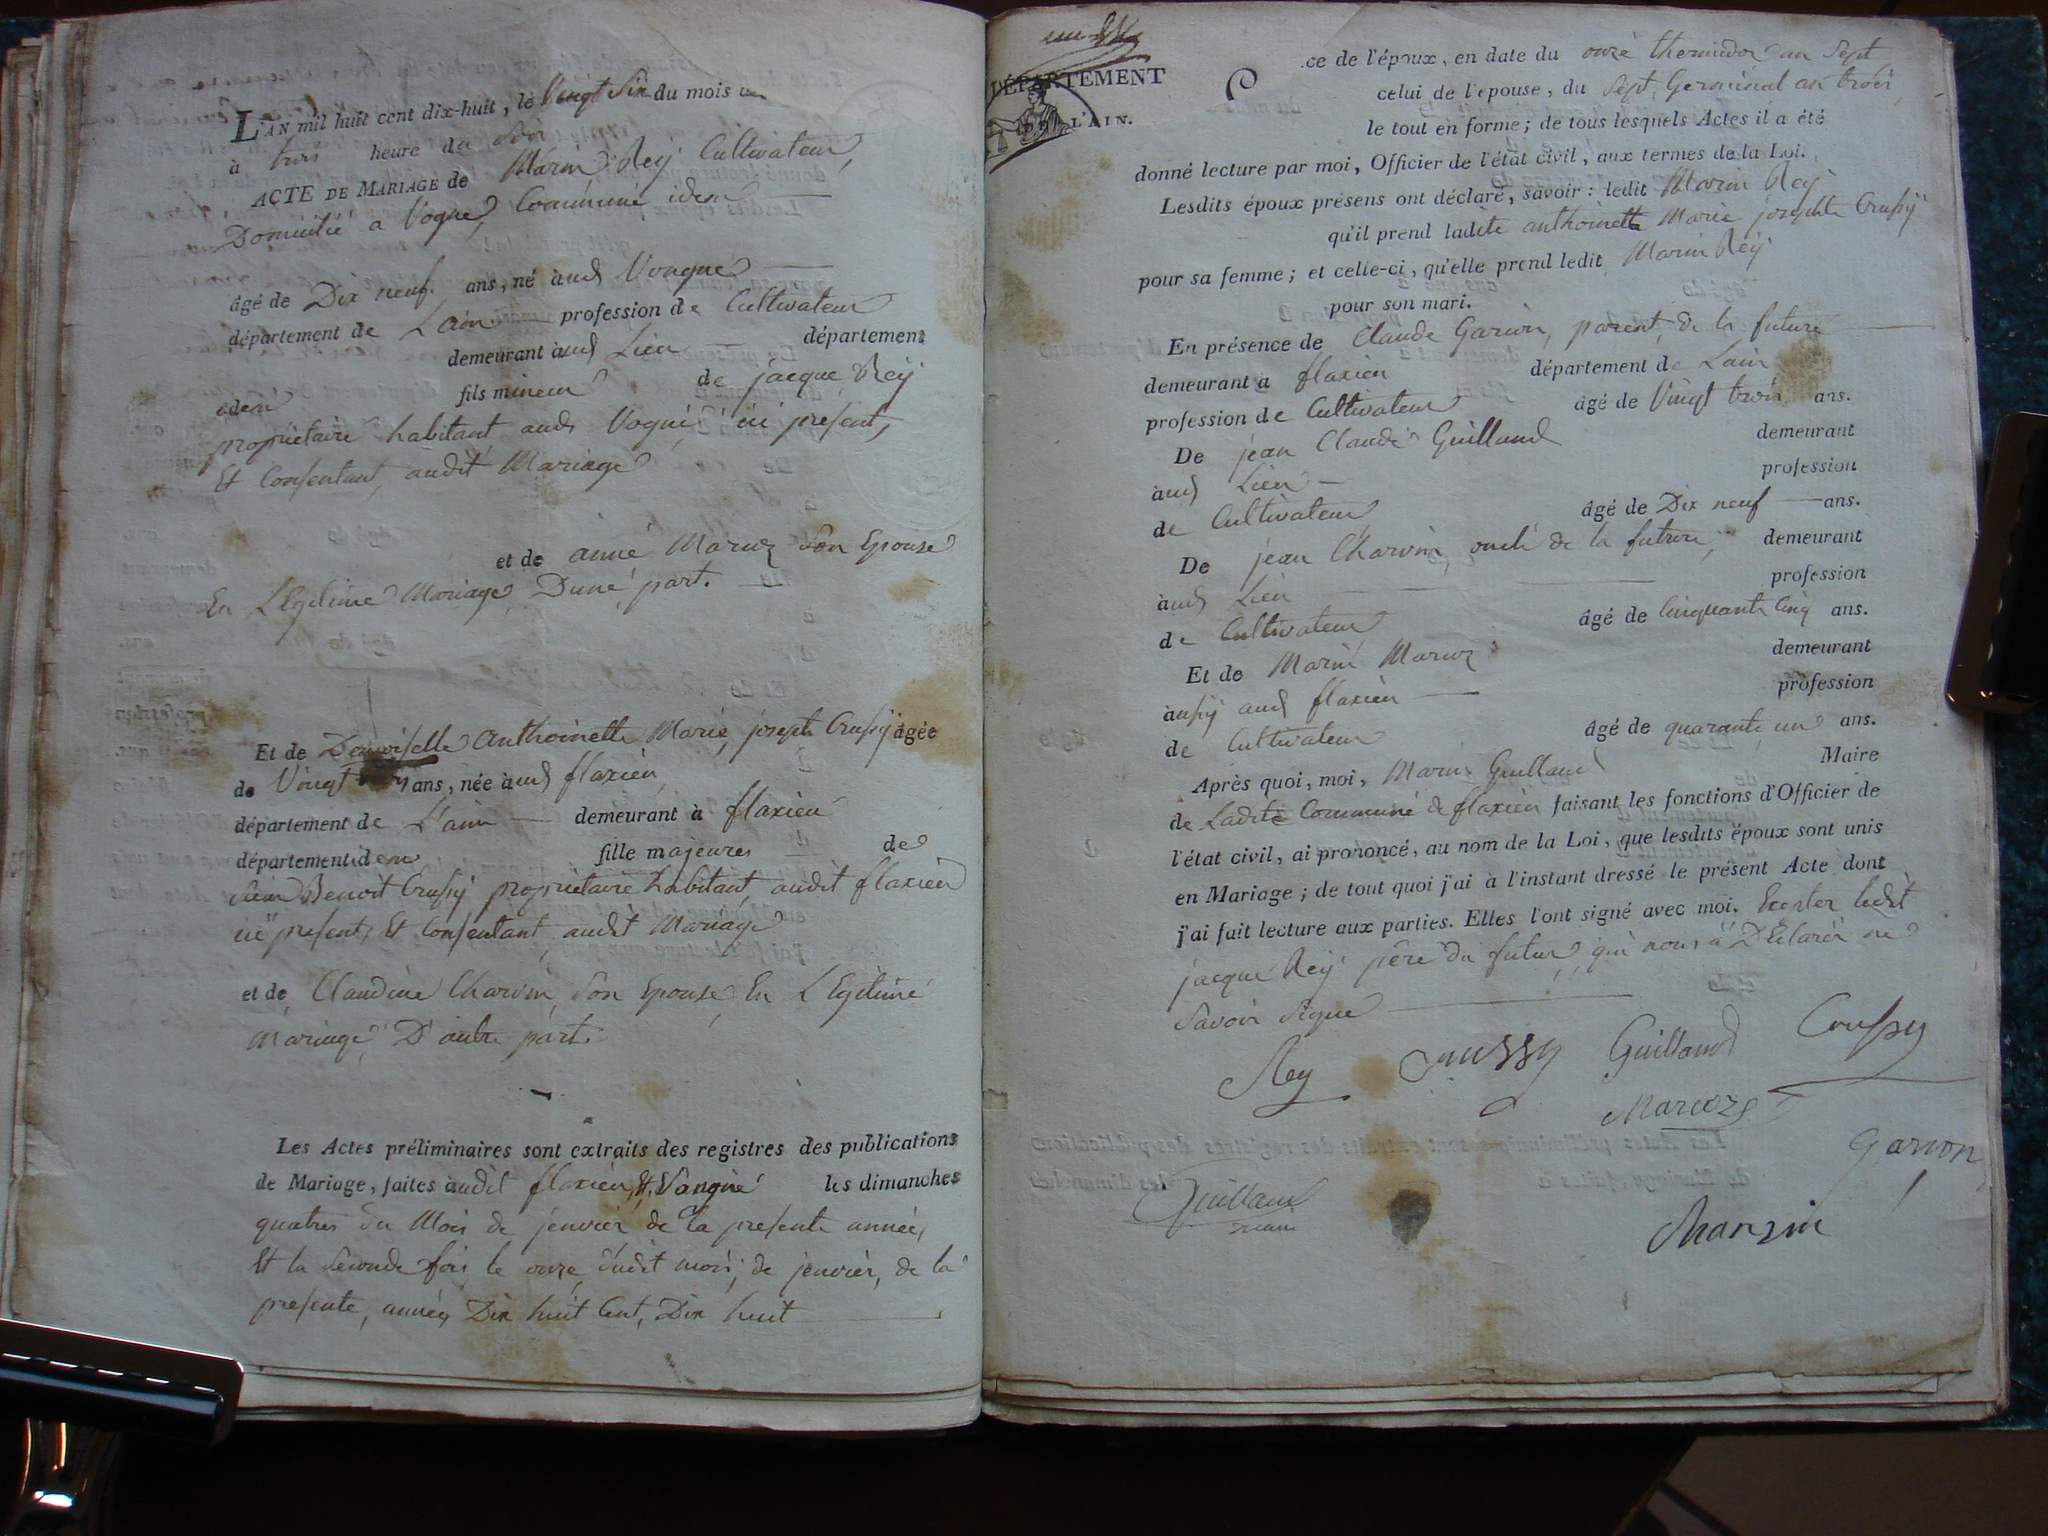 L'AN mil huit cent dix-huit, le Vingt Six du mois
à trois heure du soir
ACTE DE MARIAGE de Marin Reÿ Cultivateur,
Domicilié a Vogne, Commune idem
âgé de Dix neuf ans, né aud Vongne
département de Lain profession de Cultivateur
demeurant aud Lieu département
idem fils mineur de jacque Reÿ
propriétaire habitant audi Vogne ici présent,
Et Consentant, audit Mariage
et de anne Marioz Son Epouse
En Légitime Mariage, Dune part.
Et de Demoiselle Anthoinette Marie, josephte Crussÿ âgée
de Vingt ans, née aud flaxieu
département de L'ain demeurant à flaxieu
département idem fille majeure de
Sieur Benoit Crussÿ propriétaire habitant, audit flaxieu
ici present, Et Consentant, audit Mariage
et de Claudine Charvin Son Epouse, En Légitime
Mariage, D'autre part.
Les Actes préliminaires sont extraits des registres des publications
de Mariage, faites audit flaxieu, Et Vongne les dimanches
quatres du Mois de jenvier, de la presente année,
Et la Seconde fois, le onze dudit mois, de jenvier, de la
presente, année, Dix huit Cent, Dix huit
DÉPARTEMENT
DE L'AIN.
ce de l'époux, en date du onze thermidor an Sept
celui de l'épouse, du Sept, Germinal an trois,
le tout en forme; de tous lesquels Actes il a été
donné lecture par moi, Officier de l'état civil, aux termes de la Loi.
Lesdits époux présens ont déclaré, savoir: ledit Marin Reÿ
qu'il prend ladite anthoinette Marie josephte Crussÿ
pour sa femme; et celle-ci, qu'elle prend ledit Marin Reÿ
pour son mari.
En présence de Claude Garion, parent, de la future
demeurant a flaxieu département de Lain
profession de Cultivateur âgé de Vingt trois ans.
De jean Claude Guilland demeurant
aud Lieu profession
de Cultivateur âgé de Dix neuf ans.
De jean Charvin, oncle de la future, demeurant
aud Lieu profession
de Cultivateur âgé de Cinquante Cinq ans.
Et de Marin Marioz demeurant
aussÿ aud flaxieu profession
de Cultivateur âgé de quarante un ans.
Après quoi, moi, Marin Guilland Maire
de Ladite Commune de flaxieu faisant les fonctions d'Officier de
l'état civil, ai prononcé, au nom de la Loi, que lesdits époux sont unis
en Mariage; de tout quoi j'ai à l'instant dressé le présent Acte dont
j'ai fait lecture aux parties. Elles l'ont signé avec moi. Excepter ledit
jacque Reÿ père du futur, qui nous a Déclarér ne
Savoir Signe
Rey Crussy Guilland Crussy
Marioz
Garion
Guilland
maire
Charvin